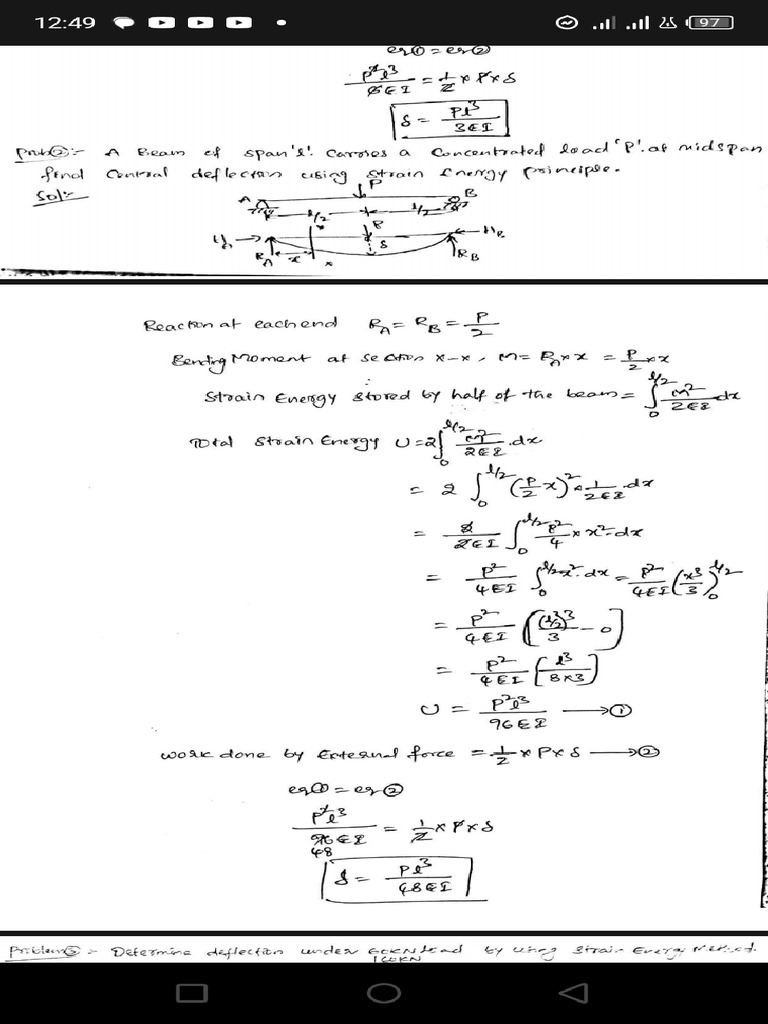 12:49
97
eq① = eq②
P²l³/6EI = 1/2 × P × δ
δ = Pl³/3EI
Prob②:- A Beam of span 'l'. Carries a Concentrated load 'P'. at midspan
find Central deflection using Strain Energy principle.
Sol:-
P
A B
l/2 l/2
x P
H_A H_B
δ
R_A x x R_B
Reaction at each end R_A = R_B = P/2
Bending Moment at section x-x, M = R_A × x = P/2 × x
Strain Energy stored by half of the beam = ∫₀^{l/2} M²/2EI dx
Total Strain Energy U = 2∫₀^{l/2} M²/2EI . dx
= 2 ∫₀^{l/2} (P/2 x)² × 1/2EI . dx
= 2/2EI ∫₀^{l/2} P²/4 × x² . dx
= P²/4EI ∫₀^{l/2} x² . dx = P²/4EI (x³/3)₀^{l/2}
= P²/4EI [(l/2)³/3 - 0]
= P²/4EI [l³/8×3]
U = P²l³/96EI ⟶ ①
Work done by External force = 1/2 × P × δ ⟶ ②
eq① = eq②
P²l³/96EI = 1/2 × P × δ
48
δ = Pl³/48EI
Problem③:- Determine deflection under 60KN load by using Strain Energy Method.
160KN